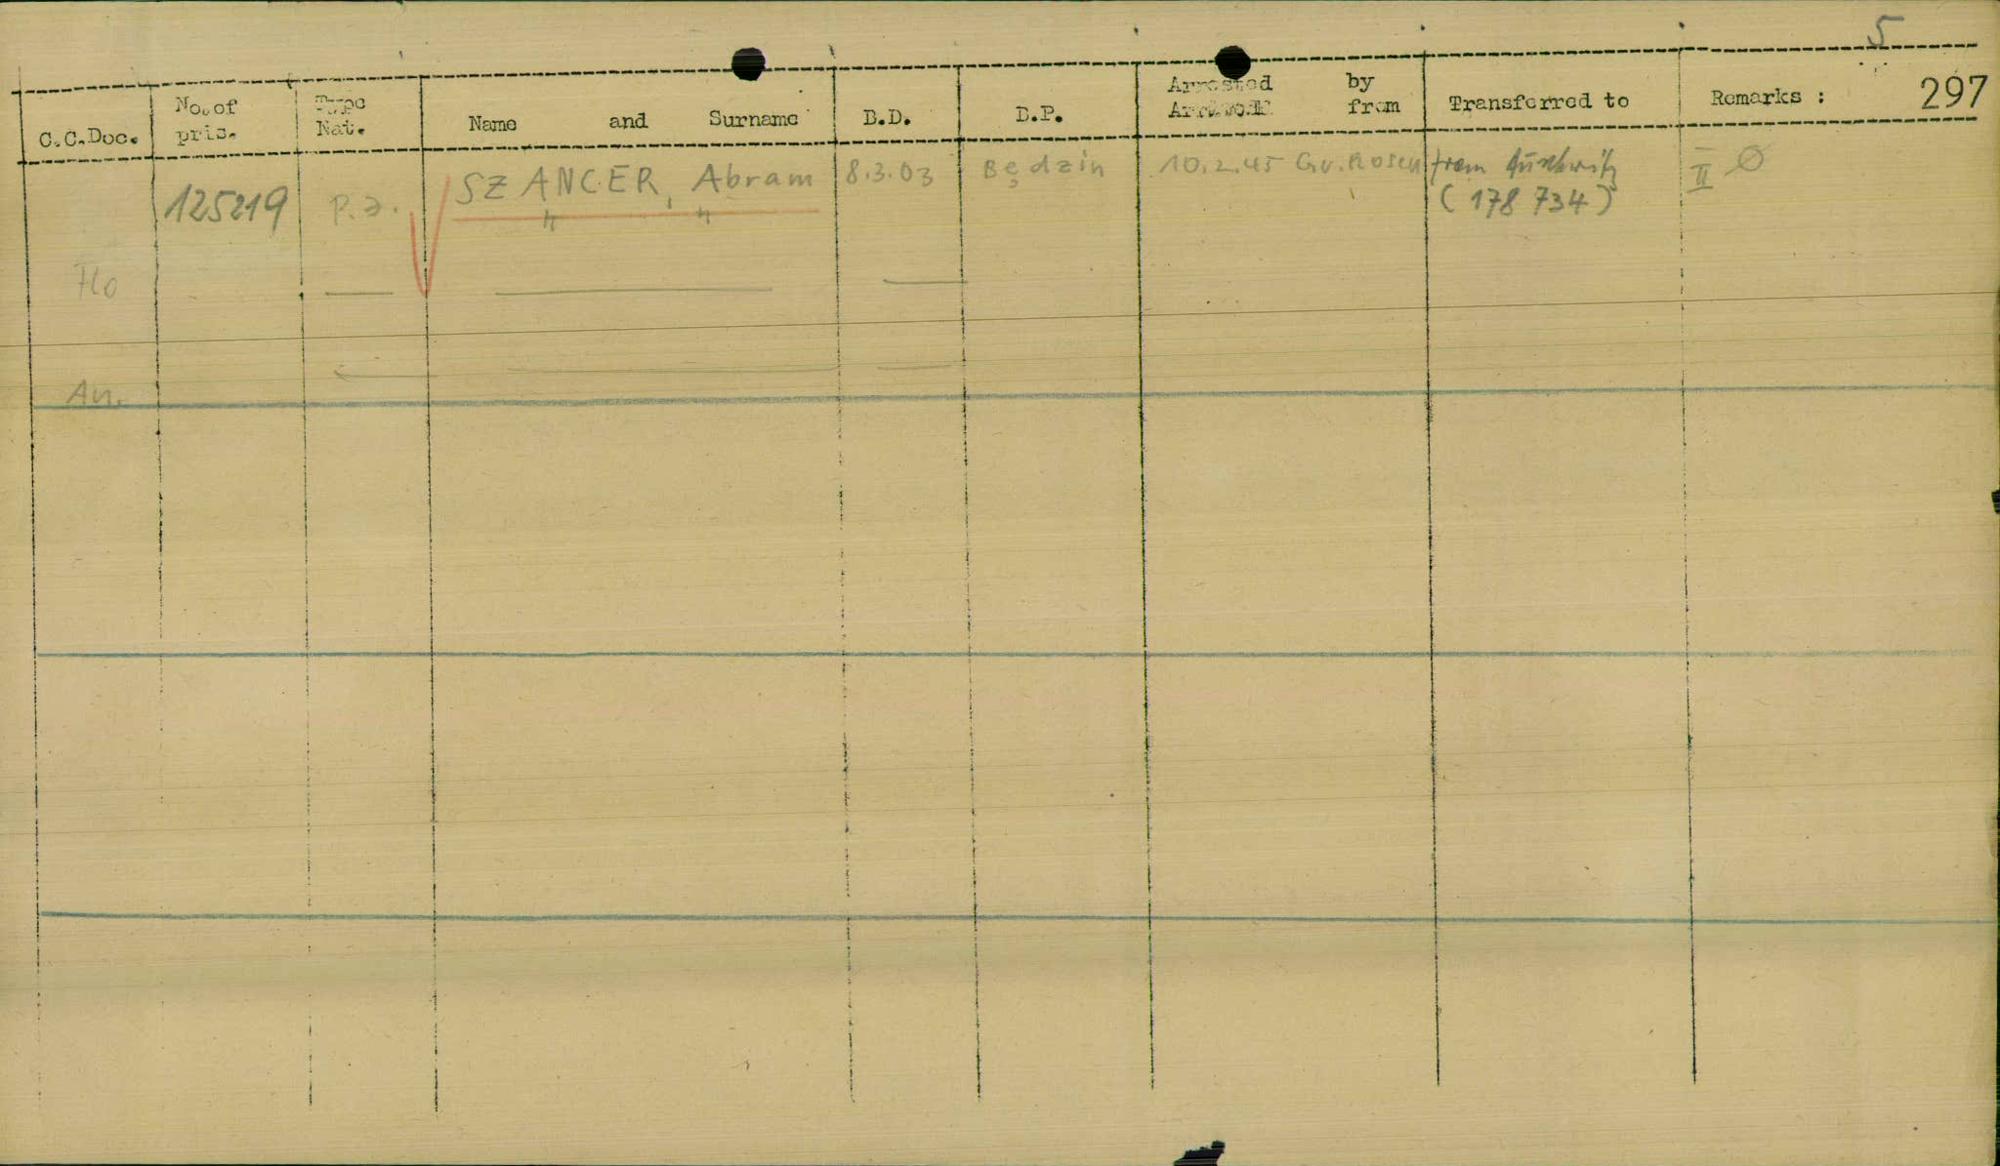 5
297
C.C.Doc. No. of pris. Type Nat. Name and Surname B.D. B.P. Arrested by from Transferred to Remarks :
125219 SZANCER, Abram 8.3.03 Będzin 10.2.45 Gr. Rosen from Auschwitz II Ø
(178 734)
" "
An.